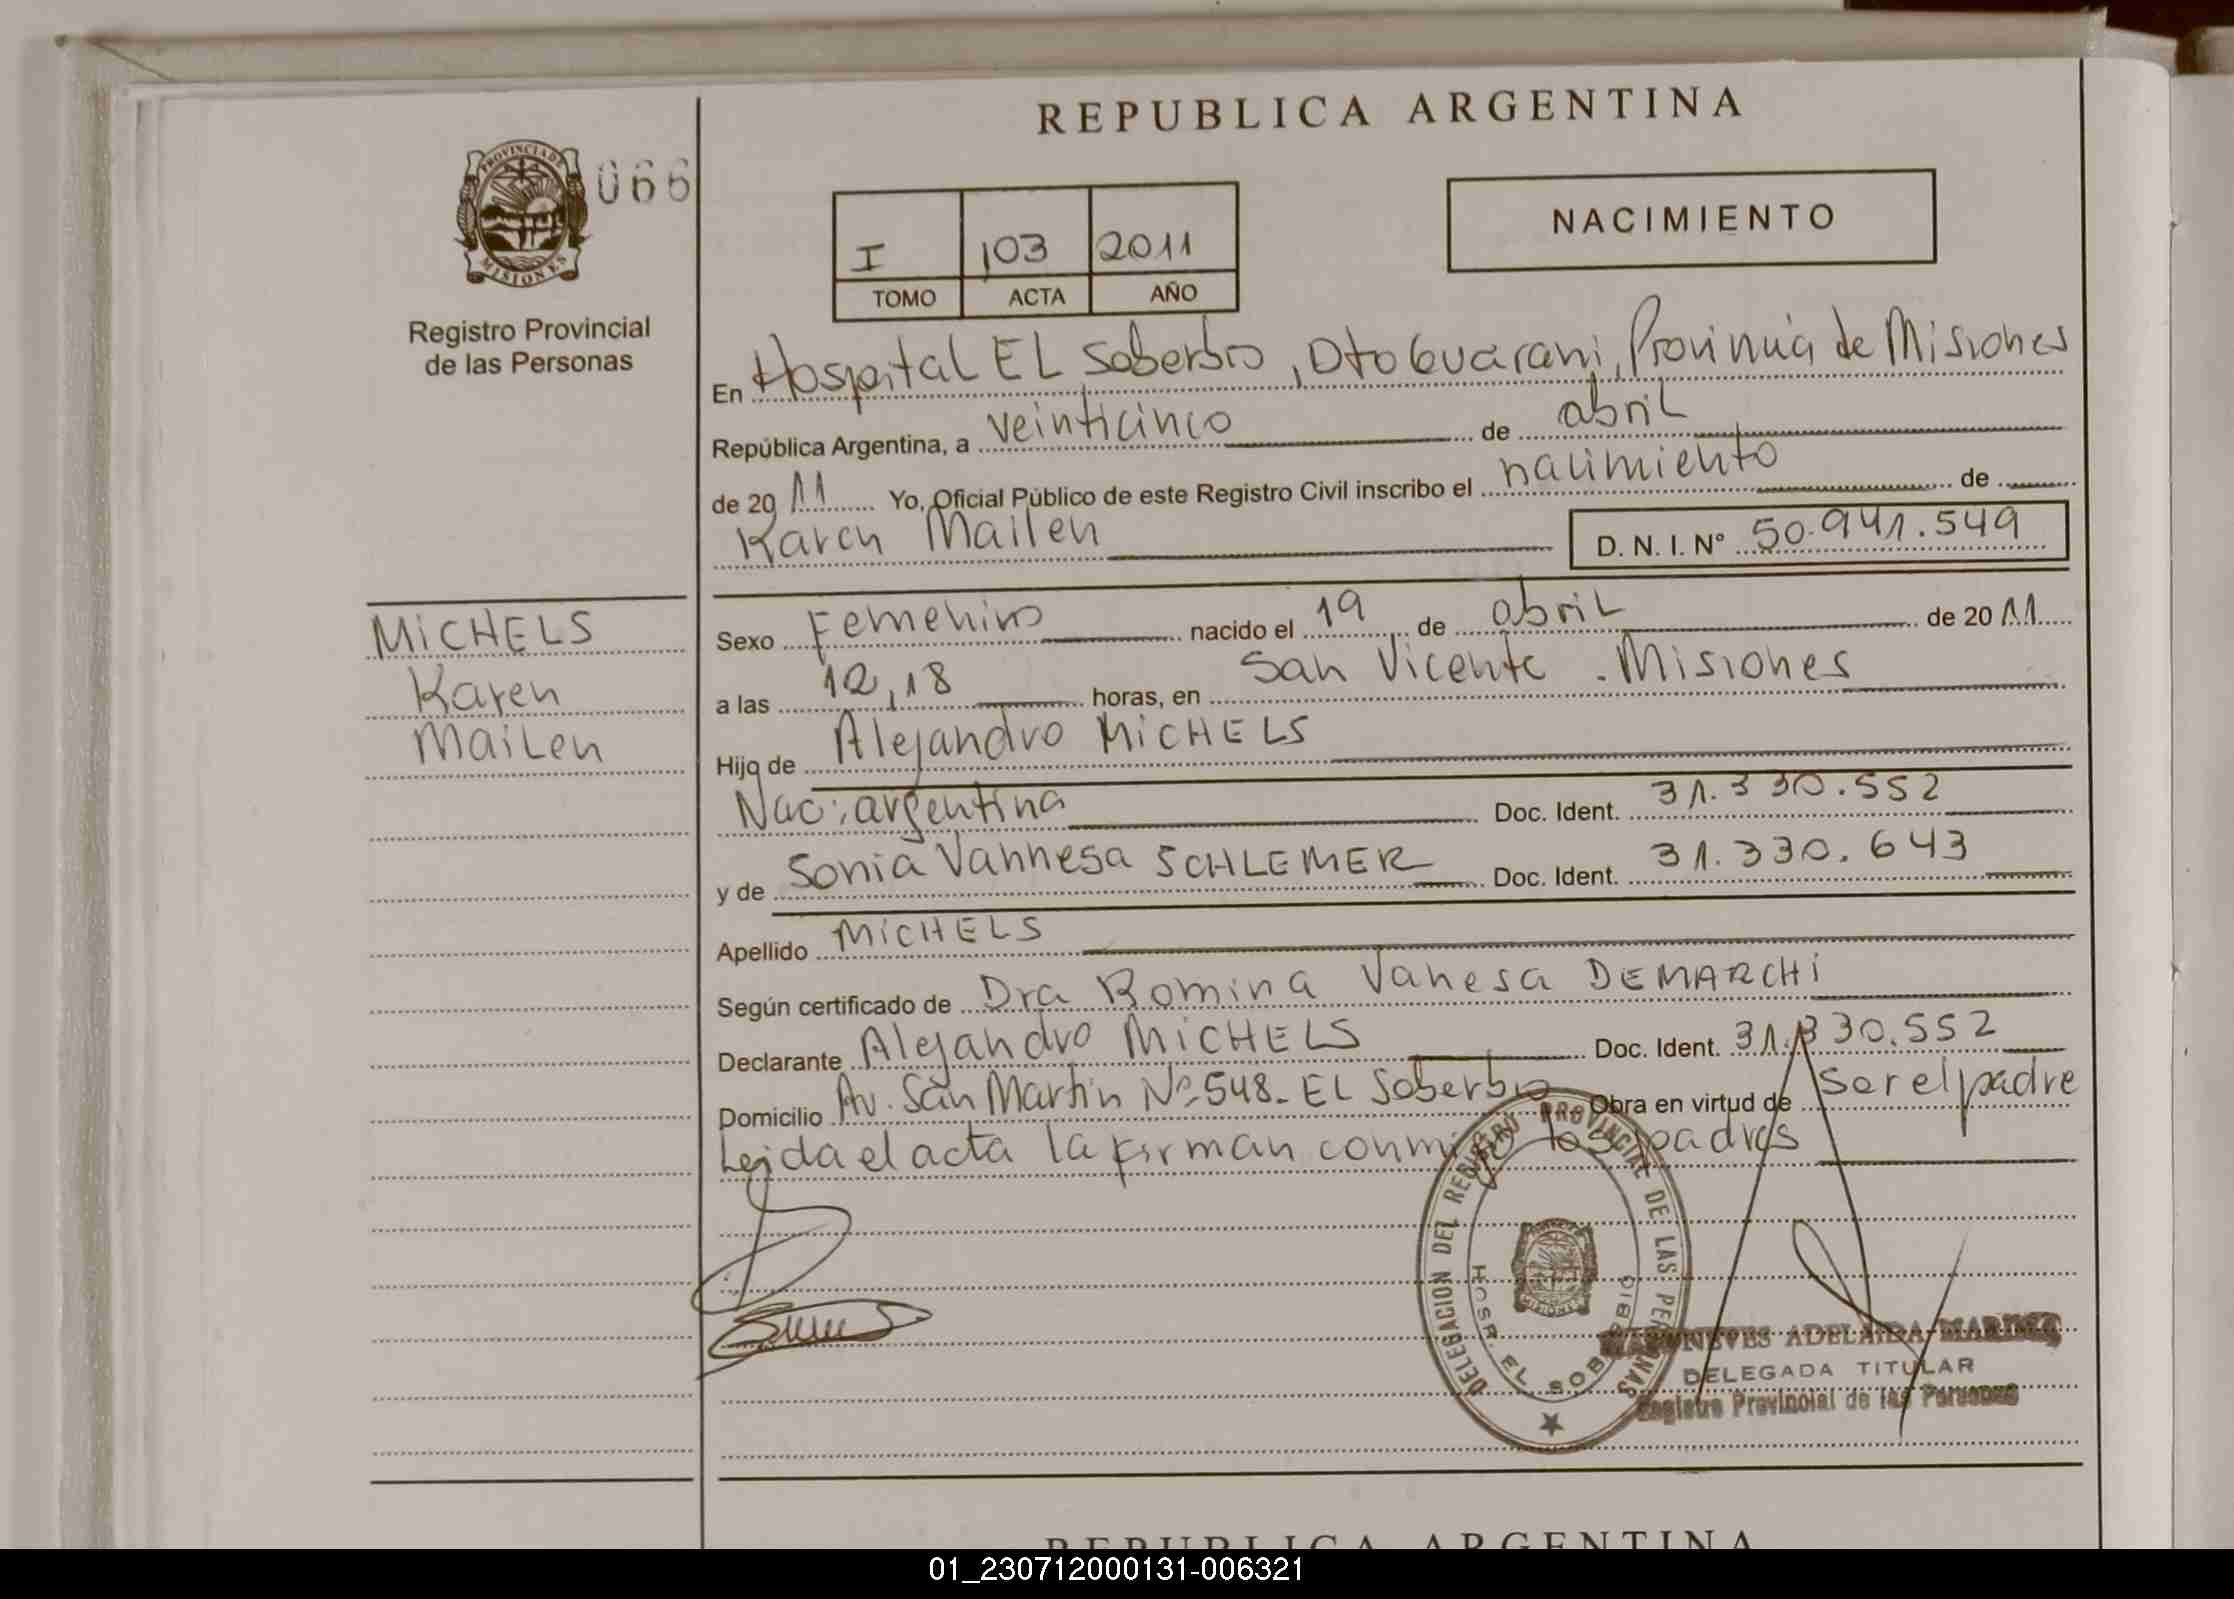 REPUBLICA ARGENTINA
PROVINCIA DE MISIONES
066
NACIMIENTO
I 103 2011
TOMO ACTA AÑO
Registro Provincial
de las Personas
En Hospital EL Soberbio, Dto Guarani, Provincia de Misiones
República Argentina, a veinticinco de abril
de 2011 Yo, Oficial Público de este Registro Civil inscribo el nacimiento de
Karen Mailen D. N. I. Nº 50.941.549
MiCHELS
Karen
MaiLen
Sexo Femenino nacido el 19 de abril de 2011
a las 12,18 horas, en San Vicente - Misiones
Hijo de Alejandro MiCHELS
Nac: argentina Doc. Ident. 31.330.552
y de Sonia Vannesa SCHLEMER Doc. Ident. 31.330.643
Apellido MiCHELS
Según certificado de Dra Romina Vanesa DEMARCHi
Declarante Alejandro MiCHELS Doc. Ident. 31.330.552
Domicilio Av. San Martin Nº 548- EL Soberbio Obra en virtud de ser el padre
Leida el acta la firman conmigo los padres
DELEGACION DEL REGISTRO PROVINCIAL DE LAS PERSONAS
HOSP. EL SOBERBIO
MISIONES
NEVES ADELAIDA
DELEGADA TITULAR
Registro Provincial de las Personas
REPUBLICA ARGENTINA
01_230712000131-006321